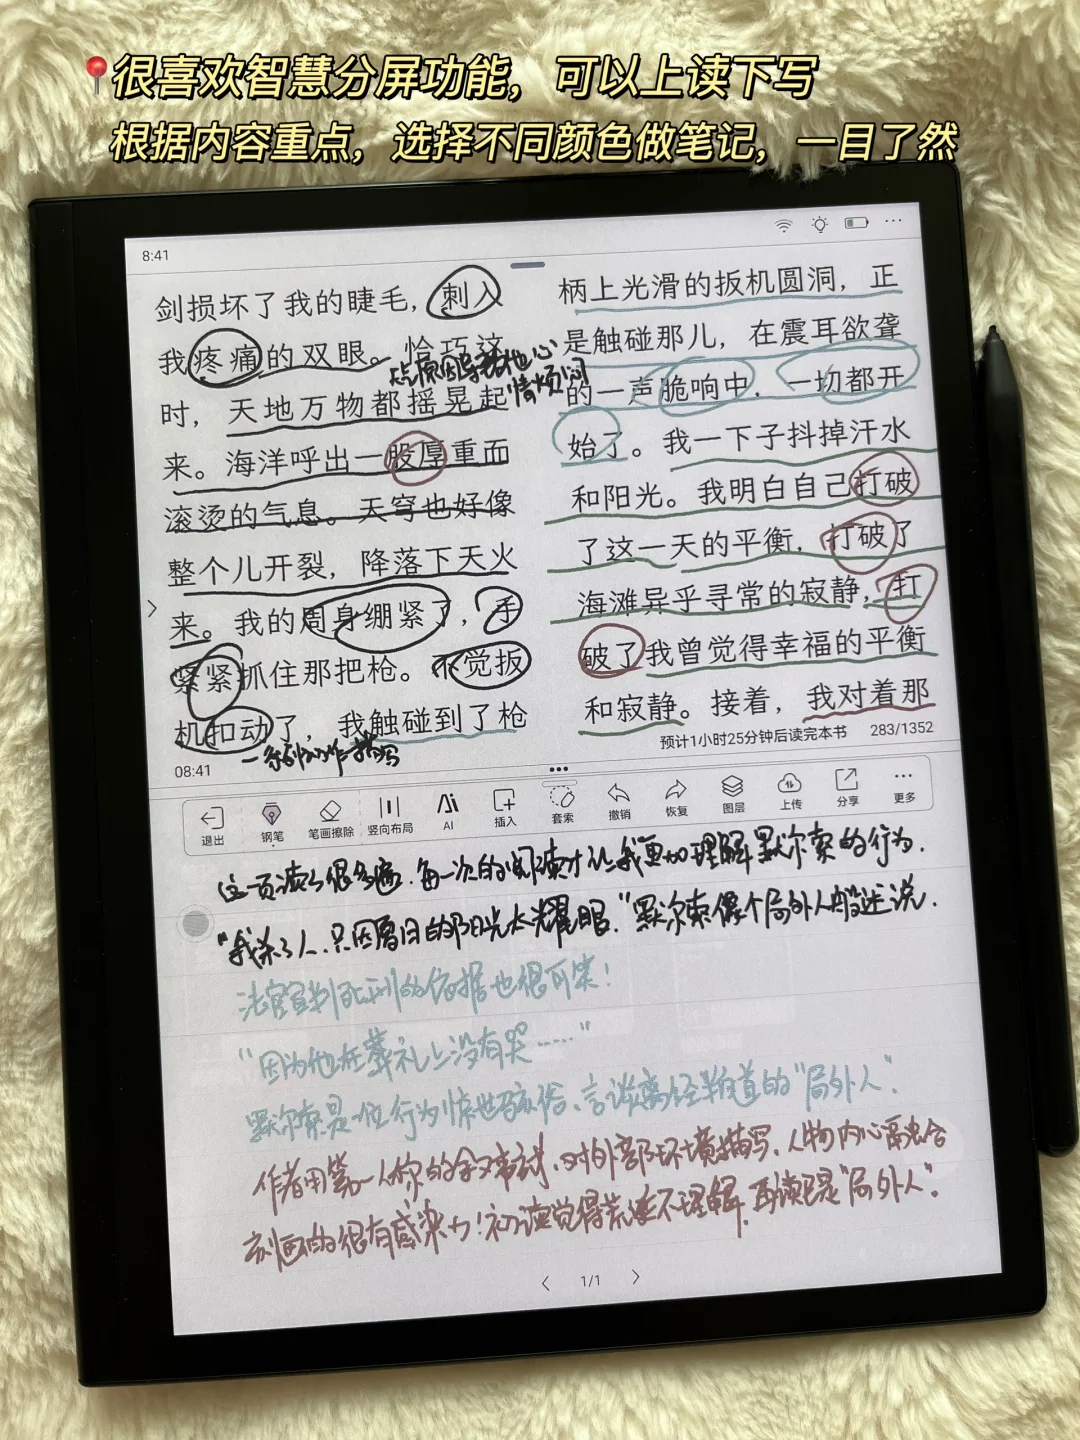 很喜欢智慧分屏功能，可以上读下写
根据内容重点，选择不同颜色做笔记，一目了然
8:41
剑损坏了我的睫毛，刺入
我疼痛的双眼。恰巧这
时，天地万物都摇晃起
来。海洋呼出一股厚重而
滚烫的气息。天穹也好像
整个儿开裂，降落下天火
来。我的周身绷紧了，手
紧紧抓住那把枪。不觉扳
机扣动了，我触碰到了枪
柄上光滑的扳机圆洞，正
是触碰那儿，在震耳欲聋
的一声脆响中，一切都开
始了。我一下子抖掉汗水
和阳光。我明白自己打破
了这一天的平衡，打破了
海滩异乎寻常的寂静，打
破了我曾觉得幸福的平衡
和寂静。接着，我对着那
心
情烦闷
一系列动作描写
08:41
预计1小时25分钟后读完本书 283/1352
退出 钢笔 笔画擦除 竖向布局 AI 插入 套索 撤销 恢复 图层 上传 分享 更多
这一页读了很多遍，每一次的阅读才让我更加理解默尔索的行为.
"我杀了人，只因夏日的阳光太耀眼."默尔索像个局外人般述说.
法官宣判死刑的依据也很可笑！
"因为他在葬礼上没有哭……"
默尔索是一位行为惊世骇俗、言谈离经叛道的"局外人".
作者用第一人称的叙事方式，对外部环境描写，人物内心融合
刻画的很有感染力！初读觉得荒诞不理解，再读已是"局外人".
1/1